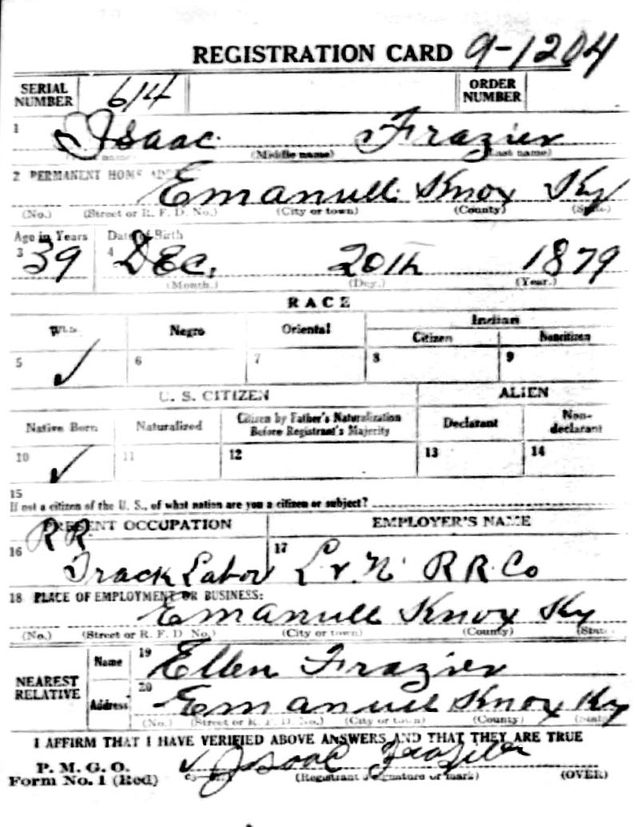 REGISTRATION CARD 9-1204
SERIAL NUMBER 614 ORDER NUMBER
1 Isaac Frazier
(Middle name) (Last name)
2 PERMANENT HOME Emanuell Knox Ky
(No.) (Street or R. F. D. No.) (City or town) (County) (State)
Age in Years Date of Birth
3 39 4 DEc. 20th 1879
(Month.) (Day.) (Year.)
RACE
White Negro Oriental Indian
Citizen Noncitizen
5 ✓ 6 7 8 9
U. S. CITIZEN ALIEN
Native Born Naturalized Citizen by Father's Naturalization Before Registrant's Majority Declarant Non-declarant
10 ✓ 11 12 13 14
15
If not a citizen of the U. S., of what nation are you a citizen or subject?
PRESENT OCCUPATION EMPLOYER'S NAME
16 RR. Track Labor 17 L & N R R Co
18 PLACE OF EMPLOYMENT OR BUSINESS:
Emanuell Knox Ky
(No.) (Street or R. F. D. No.) (City or town) (County) (State)
NEAREST RELATIVE Name 19 Ellen Frazier
Address 20 Emanuell Knox Ky
(No.) (Street or R. F. D. No.) (City or town) (County) (State)
I AFFIRM THAT I HAVE VERIFIED ABOVE ANSWERS AND THAT THEY ARE TRUE
P. M. G. O.
Form No. 1 (Red) ✓ Isaac Frazier
(Registrant's signature or mark) (OVER)